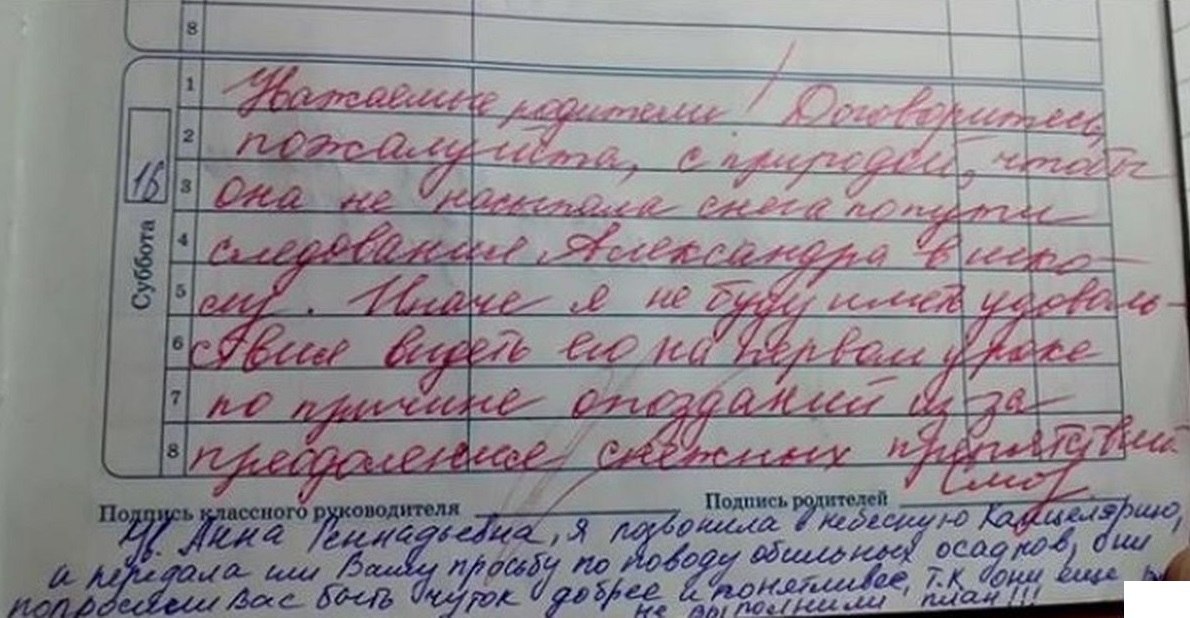 8
1 Уважаемые родители! Договоритесь,
2 пожалуйста, с природой, чтобы
3 она не насыпала снега по пути
4 следования Александра в шко-
5 лу. Иначе я не буду иметь удоволь-
6 ствие видеть его на первом уроке
7 по причине опозданий из-за
8 преодоление снежных препятствий.
16
Суббота
Подпись классного руководителя
Подпись родителей
Ув. Анна Геннадьевна, я позвонила в небесную Канцелярию,
и передала им Вашу просьбу по поводу обильных осадков, они
попросили Вас быть чуток добрее и понятливее, т.к они еще
не выполнили план!!!